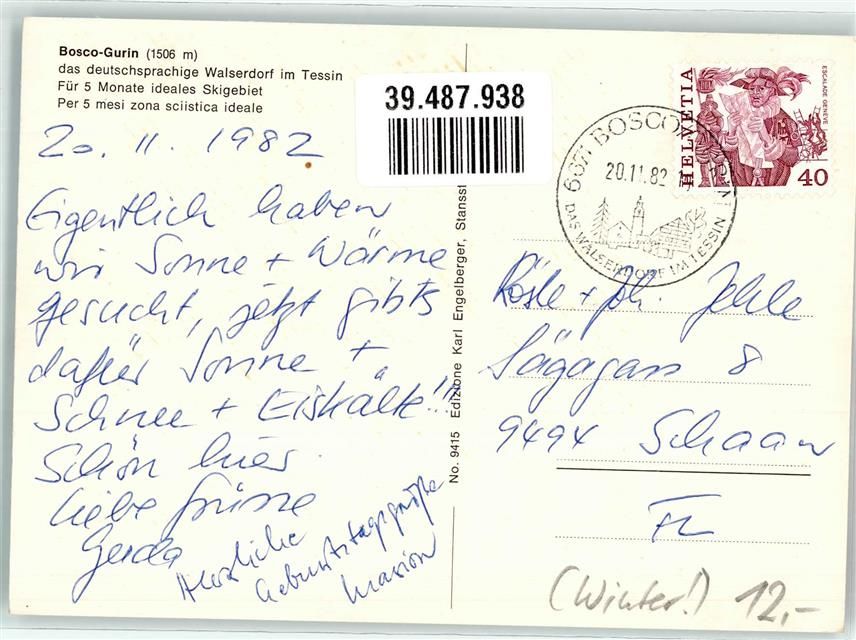 Bosco-Gurin (1506 m)
das deutschsprachige Walserdorf im Tessin
Für 5 Monate ideales Skigebiet
Per 5 mesi zona sciistica ideale
39.487.938
20. 11. 1982
Eigentlich haben
wir Sonne + Wärme
gesucht, jetzt gibts
dafür Sonne +
Schnee + Eiskälte!!!
Schön hier.
Liebe Grüsse
Gerda
Herzliche
Geburtstagsgrüße
Marion
No. 9415 Edizione Karl Engelberger, Stansst
HELVETIA
ESCALADE GENÈVE
40
6671 BOSCO
20.11.82
DAS WALSERDORF IM TESSIN
Rösle + Jehle
Sägagass 8
9494 Schaan
FL
(Winter!) 12,-